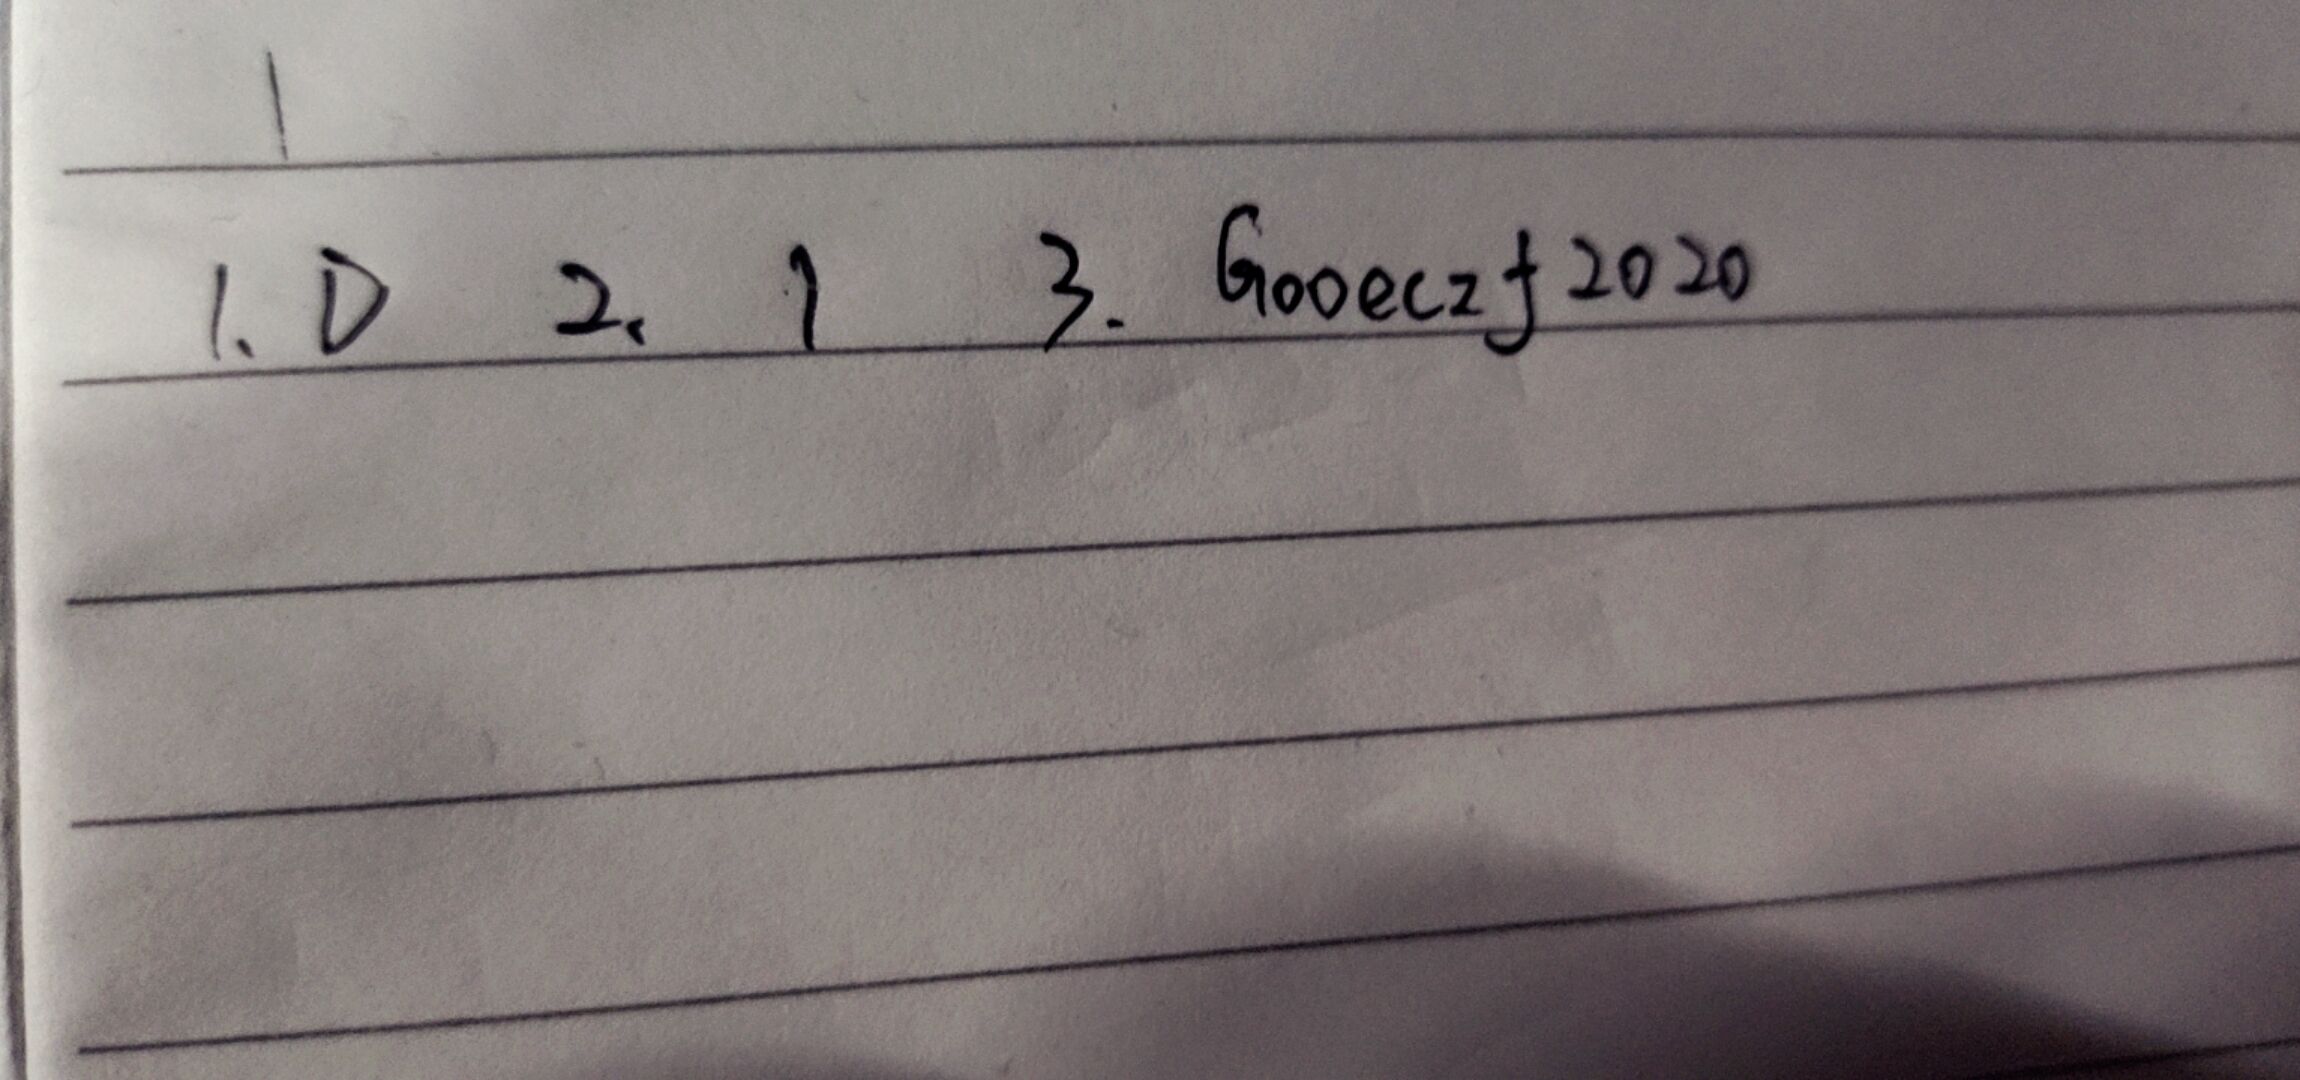 1. D 2. 1 3. Gooeczf2020